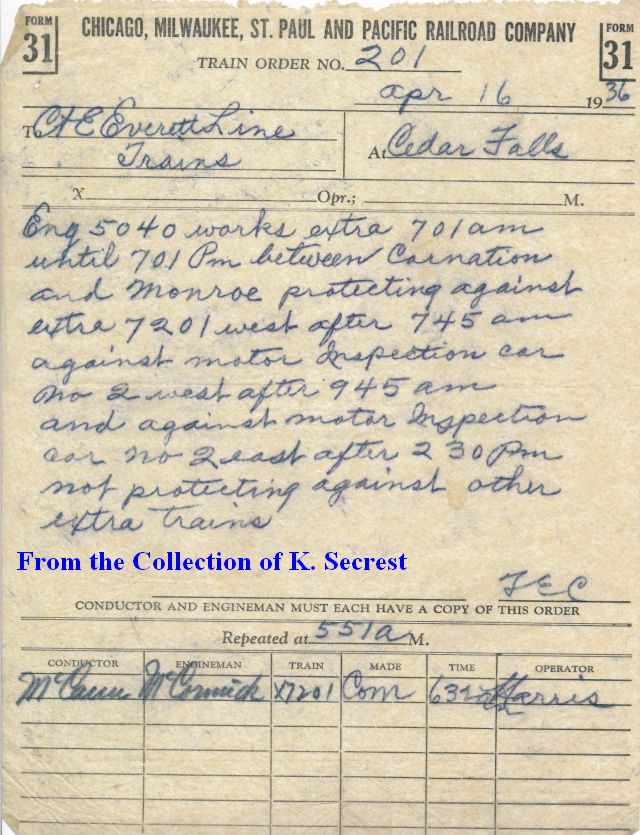 FORM 31
CHICAGO, MILWAUKEE, ST. PAUL AND PACIFIC RAILROAD COMPANY
FORM 31
TRAIN ORDER NO. 201
Apr 16 1936
To C&E Everett Line
Trains
At Cedar Falls
X Opr.; M.
Eng 5040 works extra 701 am
until 701 Pm between Carnation
and Monroe protecting against
extra 7201 west after 745 am
against motor Inspection car
No 2 west after 945 am
and against motor Inspection
car No 2 east after 230 Pm
not protecting against other
extra trains
From the Collection of K. Secrest
CONDUCTOR AND ENGINEMAN MUST EACH HAVE A COPY OF THIS ORDER
Repeated at 551a M.
CONDUCTOR ENGINEMAN TRAIN MADE TIME OPERATOR
McCormick X7201 Com Harris